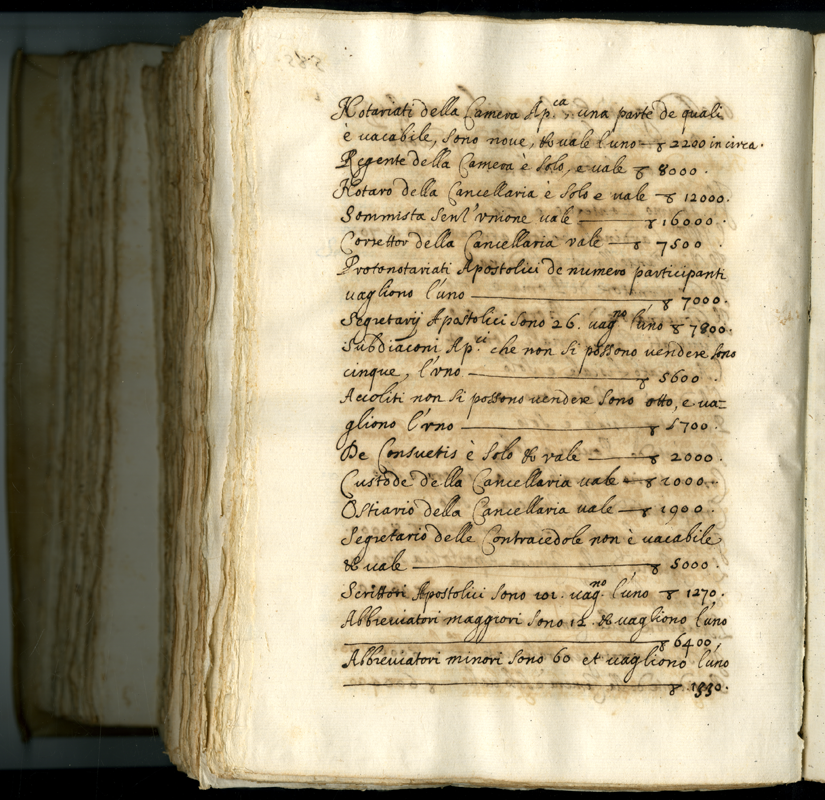 Notariati della Camera Ap.ca, una parte de quali
è vacabile, sono nove, & vale l'uno — ꝸ 2200 in circa.
Regente della Camera è solo, e vale ꝸ 8000.
Notaro della Cancellaria è solo e vale — ꝸ 12000.
Sommista senz'vnione vale — ꝸ 16000.
Correttor della Cancellaria vale — ꝸ 7500
Protonotariati Apostolici de numero participanti
vagliono l'uno — ꝸ 7000.
Segretarij Apostolici sono 26. vag.no l'uno ꝸ 7800.
Subdiaconi Ap.ci che non si possono vendere sono
cinque, l'vno — ꝸ 5600.
Accoliti non si possono vendere sono otto, e va=
gliono l'vno — ꝸ 5700.
De Consuetis è solo & vale — ꝸ 2000.
Custode della Cancellaria vale — ꝸ 1000.
Ostiario della Cancellaria vale — ꝸ 1900.
Segretario delle Contracedole non è vacabile
& vale — ꝸ 5000.
Scrittori Apostolici sono 101. vag.no l'uno ꝸ 1270.
Abbreviatori maggiori sono 12. & vagliono l'uno
— ꝸ 6400
Abbreviatori minori sono 60 et vagliono l'uno
— ꝸ 1330.